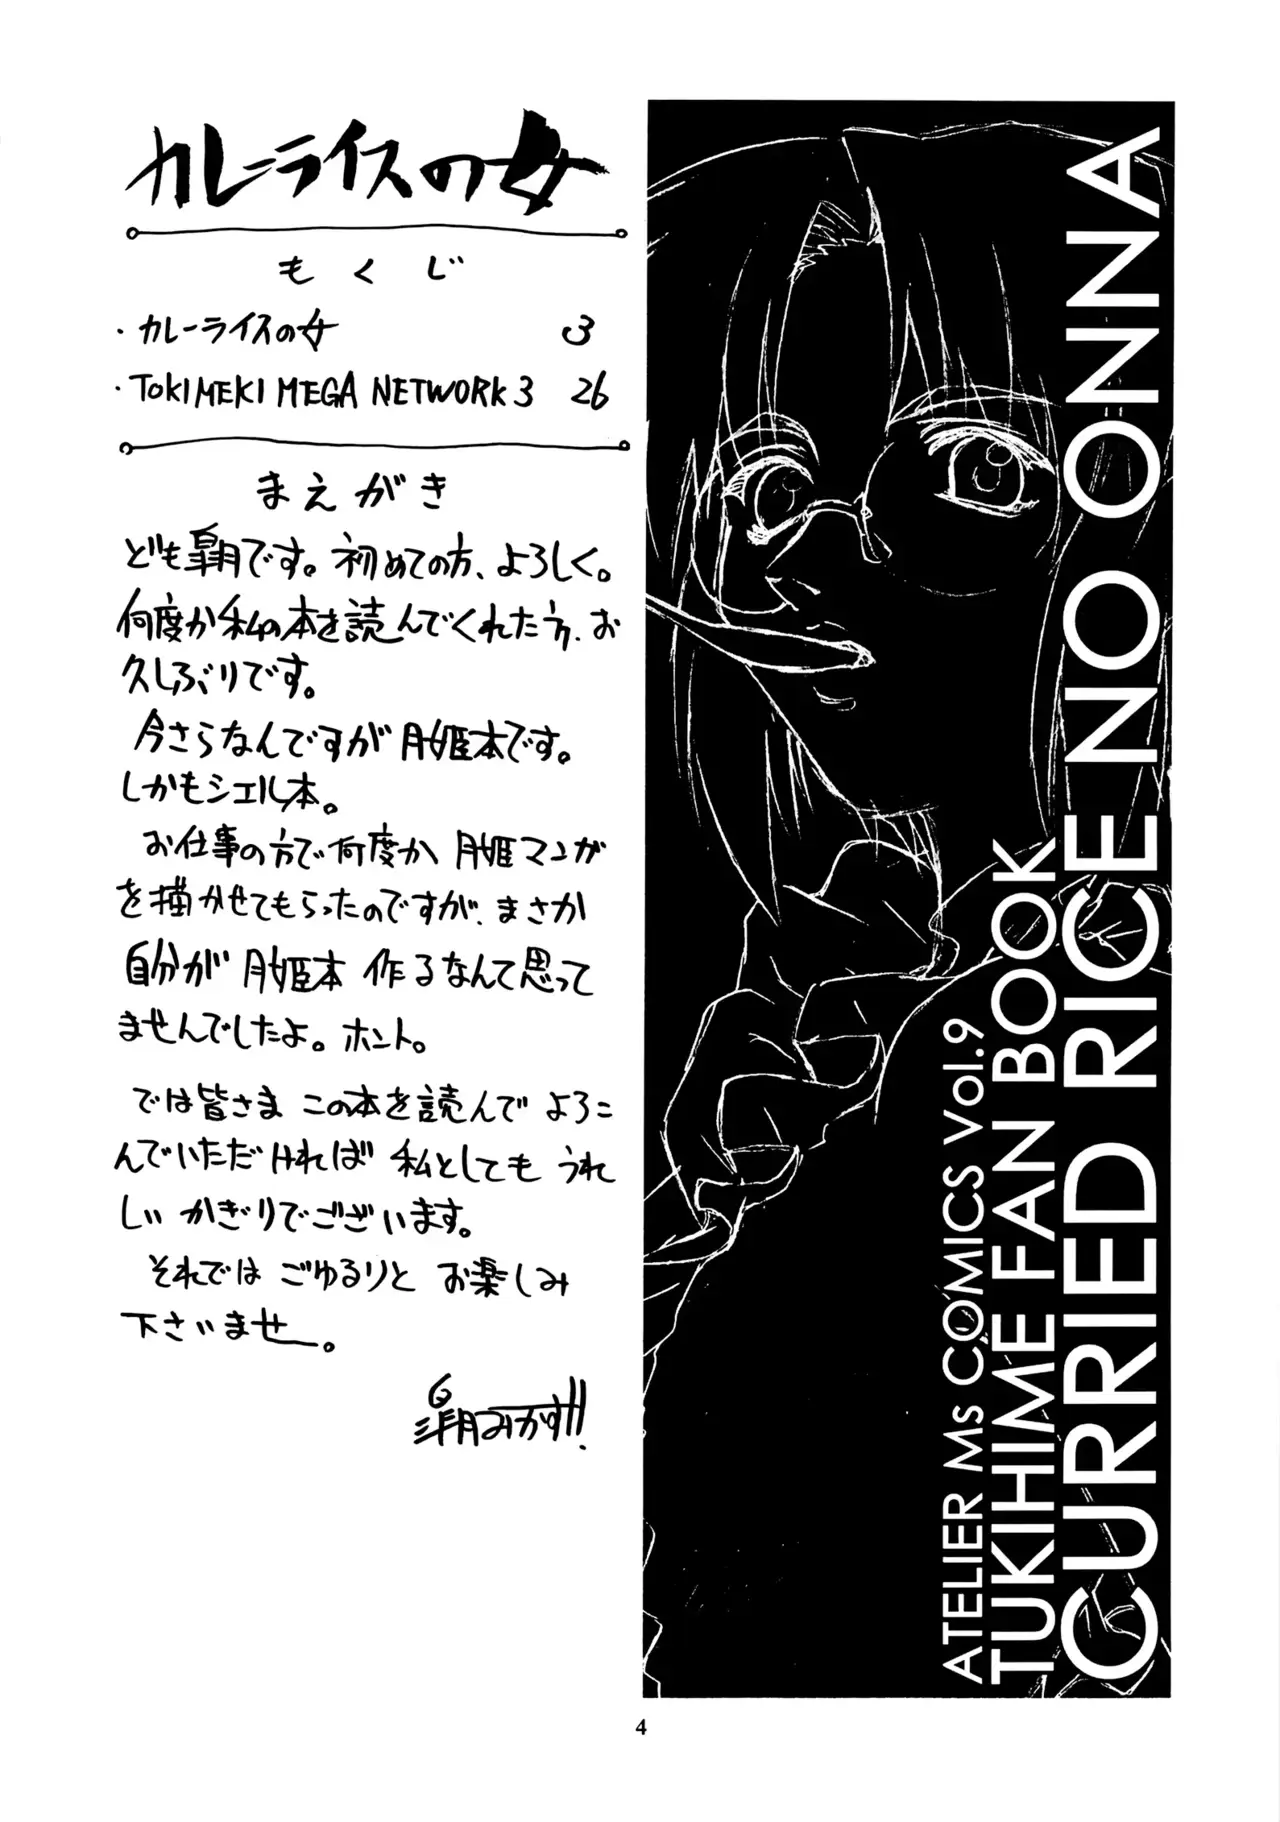 カレーライスの女
もくじ
・カレーライスの女 3
・TOKIMEKI MEGA NETWORK 3 26
まえがき
ども皐月です。初めての方、よろしく。
何度か私の本を読んでくれた方、お
久しぶりです。
今さらなんですが月姫本です。
しかもシエル本。
お仕事の方で何度か月姫マンガ
を描かせてもらったのですが、まさか
自分が月姫本 作るなんて思って
ませんでしたよ。ホント。
では皆さま この本を読んで よろこ
んでいただければ 私としても うれ
しい かぎりでございます。
それでは ごゆるりと お楽しみ
下さいませ―。
みかず!!
ATELIER Ms COMICS Vol.9
TUKIHIME FAN BOOK
CURRIED RICE NO ONNA
4